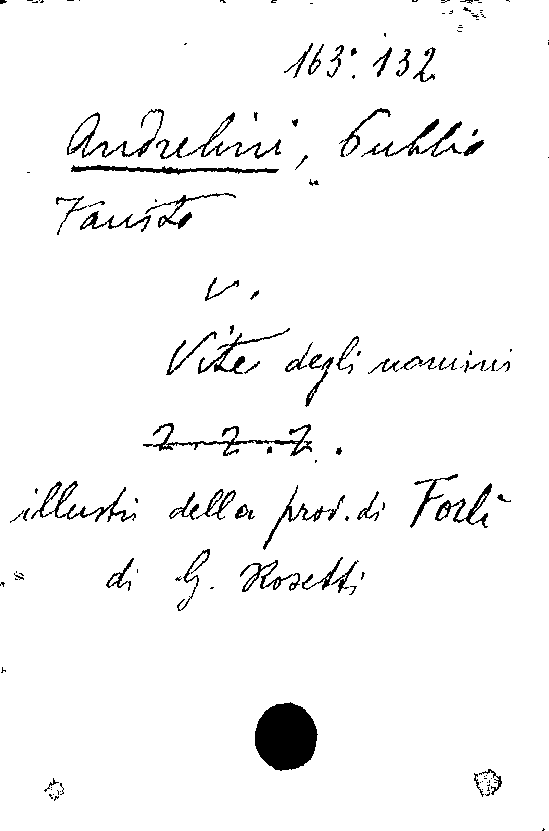 163.132
Andrelini, Publio
Fausto
v.
Vite degli uomini
illustri della prov. di Forlì
di G. Rosetti